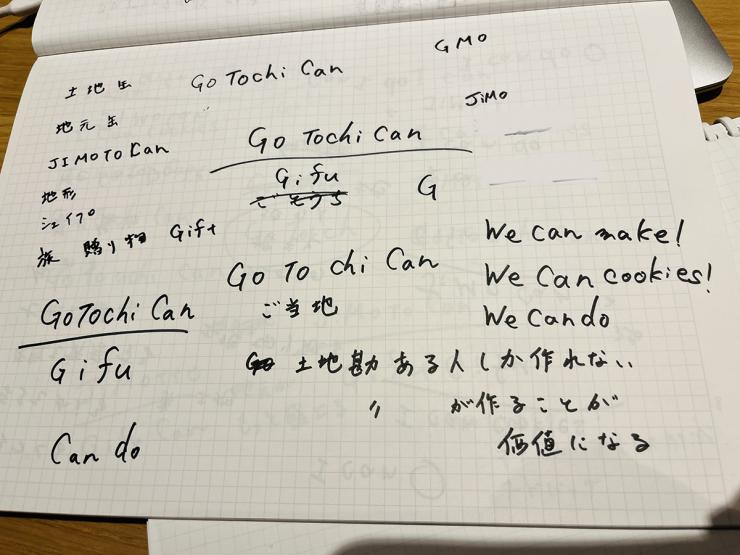 GMO
土地缶 Go Tochi Can
地元缶 JiMo
JIMOTO Can Go Tochi Can
Gifu
地形 G
シェイプ
旅 贈り物 Gift
We can make!
Go To chi Can
ご当地
We Can cookies!
GoTochi Can
We Can do
Gifu
土地勘ある人しか作れない
〃 が作ることが
価値になる
Can do